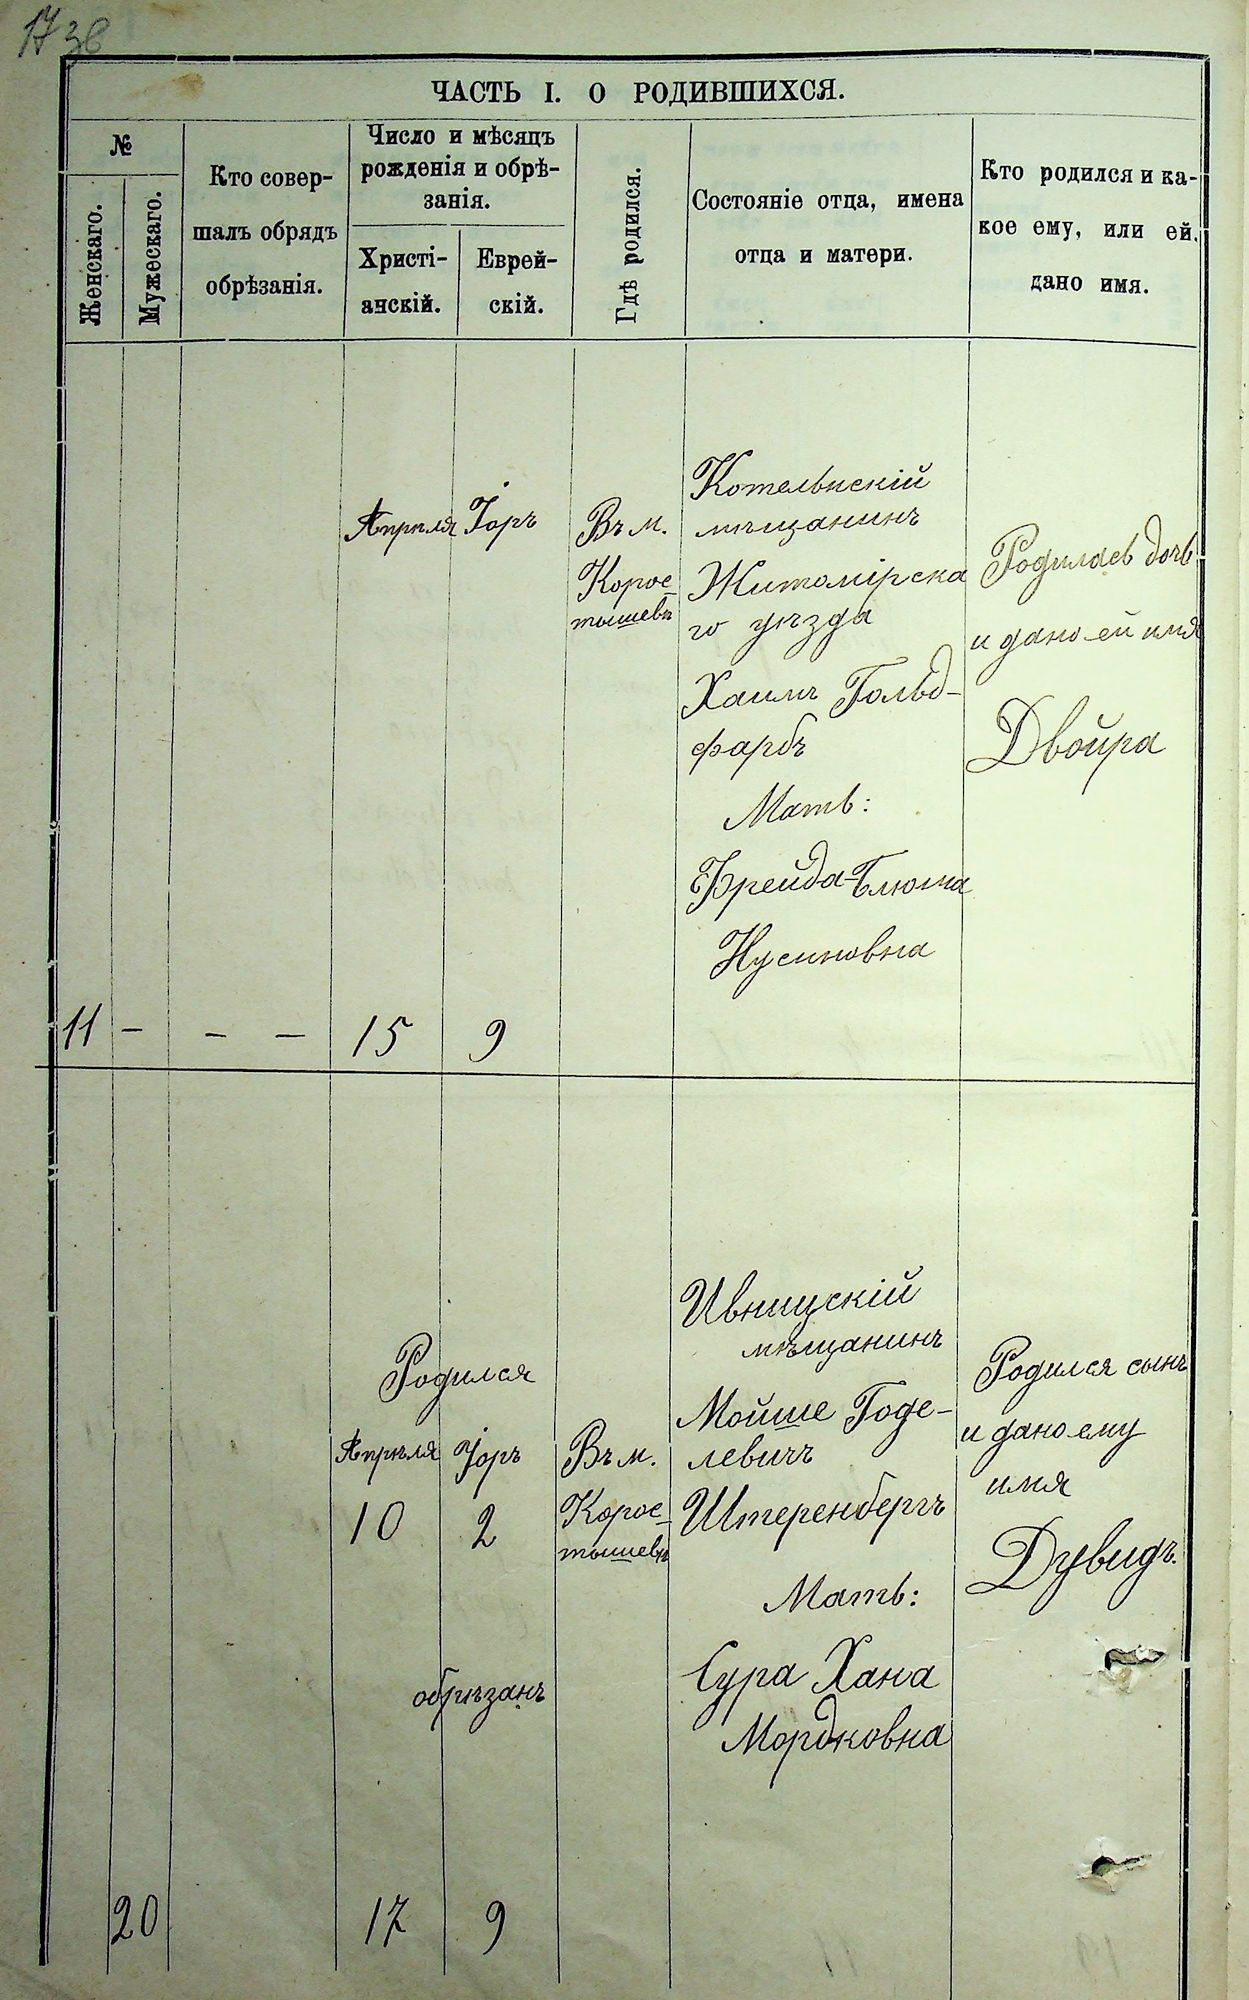 17 38
ЧАСТЬ I. О РОДИВШИХСЯ.
№
Женскаго.
Мужескаго.
Кто совер-
шалъ обрядъ
обрѣзанія.
Число и мѣсяцъ
рожденія и обрѣ-
занія.
Христі-
анскій.
Еврей-
скій.
Гдѣ родился.
Состояніе отца, имена
отца и матери.
Кто родился и ка-
кое ему, или ей,
дано имя.
Апрѣля
15
Іоръ
9
Въ м.
Корос-
тышевѣ
Котельнскій
мѣщанинъ
Житомірска
го уѣзда
Хаимъ Гольд-
фарбъ
Мать:
Фрейда-Блюма
Нусиновна
Родилась дочь
и дано ей имя
Двойра
11 - - -
Родился
Апрѣля
10
Іоръ
2
обрѣзанъ
17
9
Въ м.
Корос-
тышевѣ
Ивницскій
мѣщанинъ
Мойше Годе-
левичъ
Штеренбергъ
Мать:
Сура Хана
Мордковна
Родился сынъ
и дано ему
имя
Дувидъ.
20